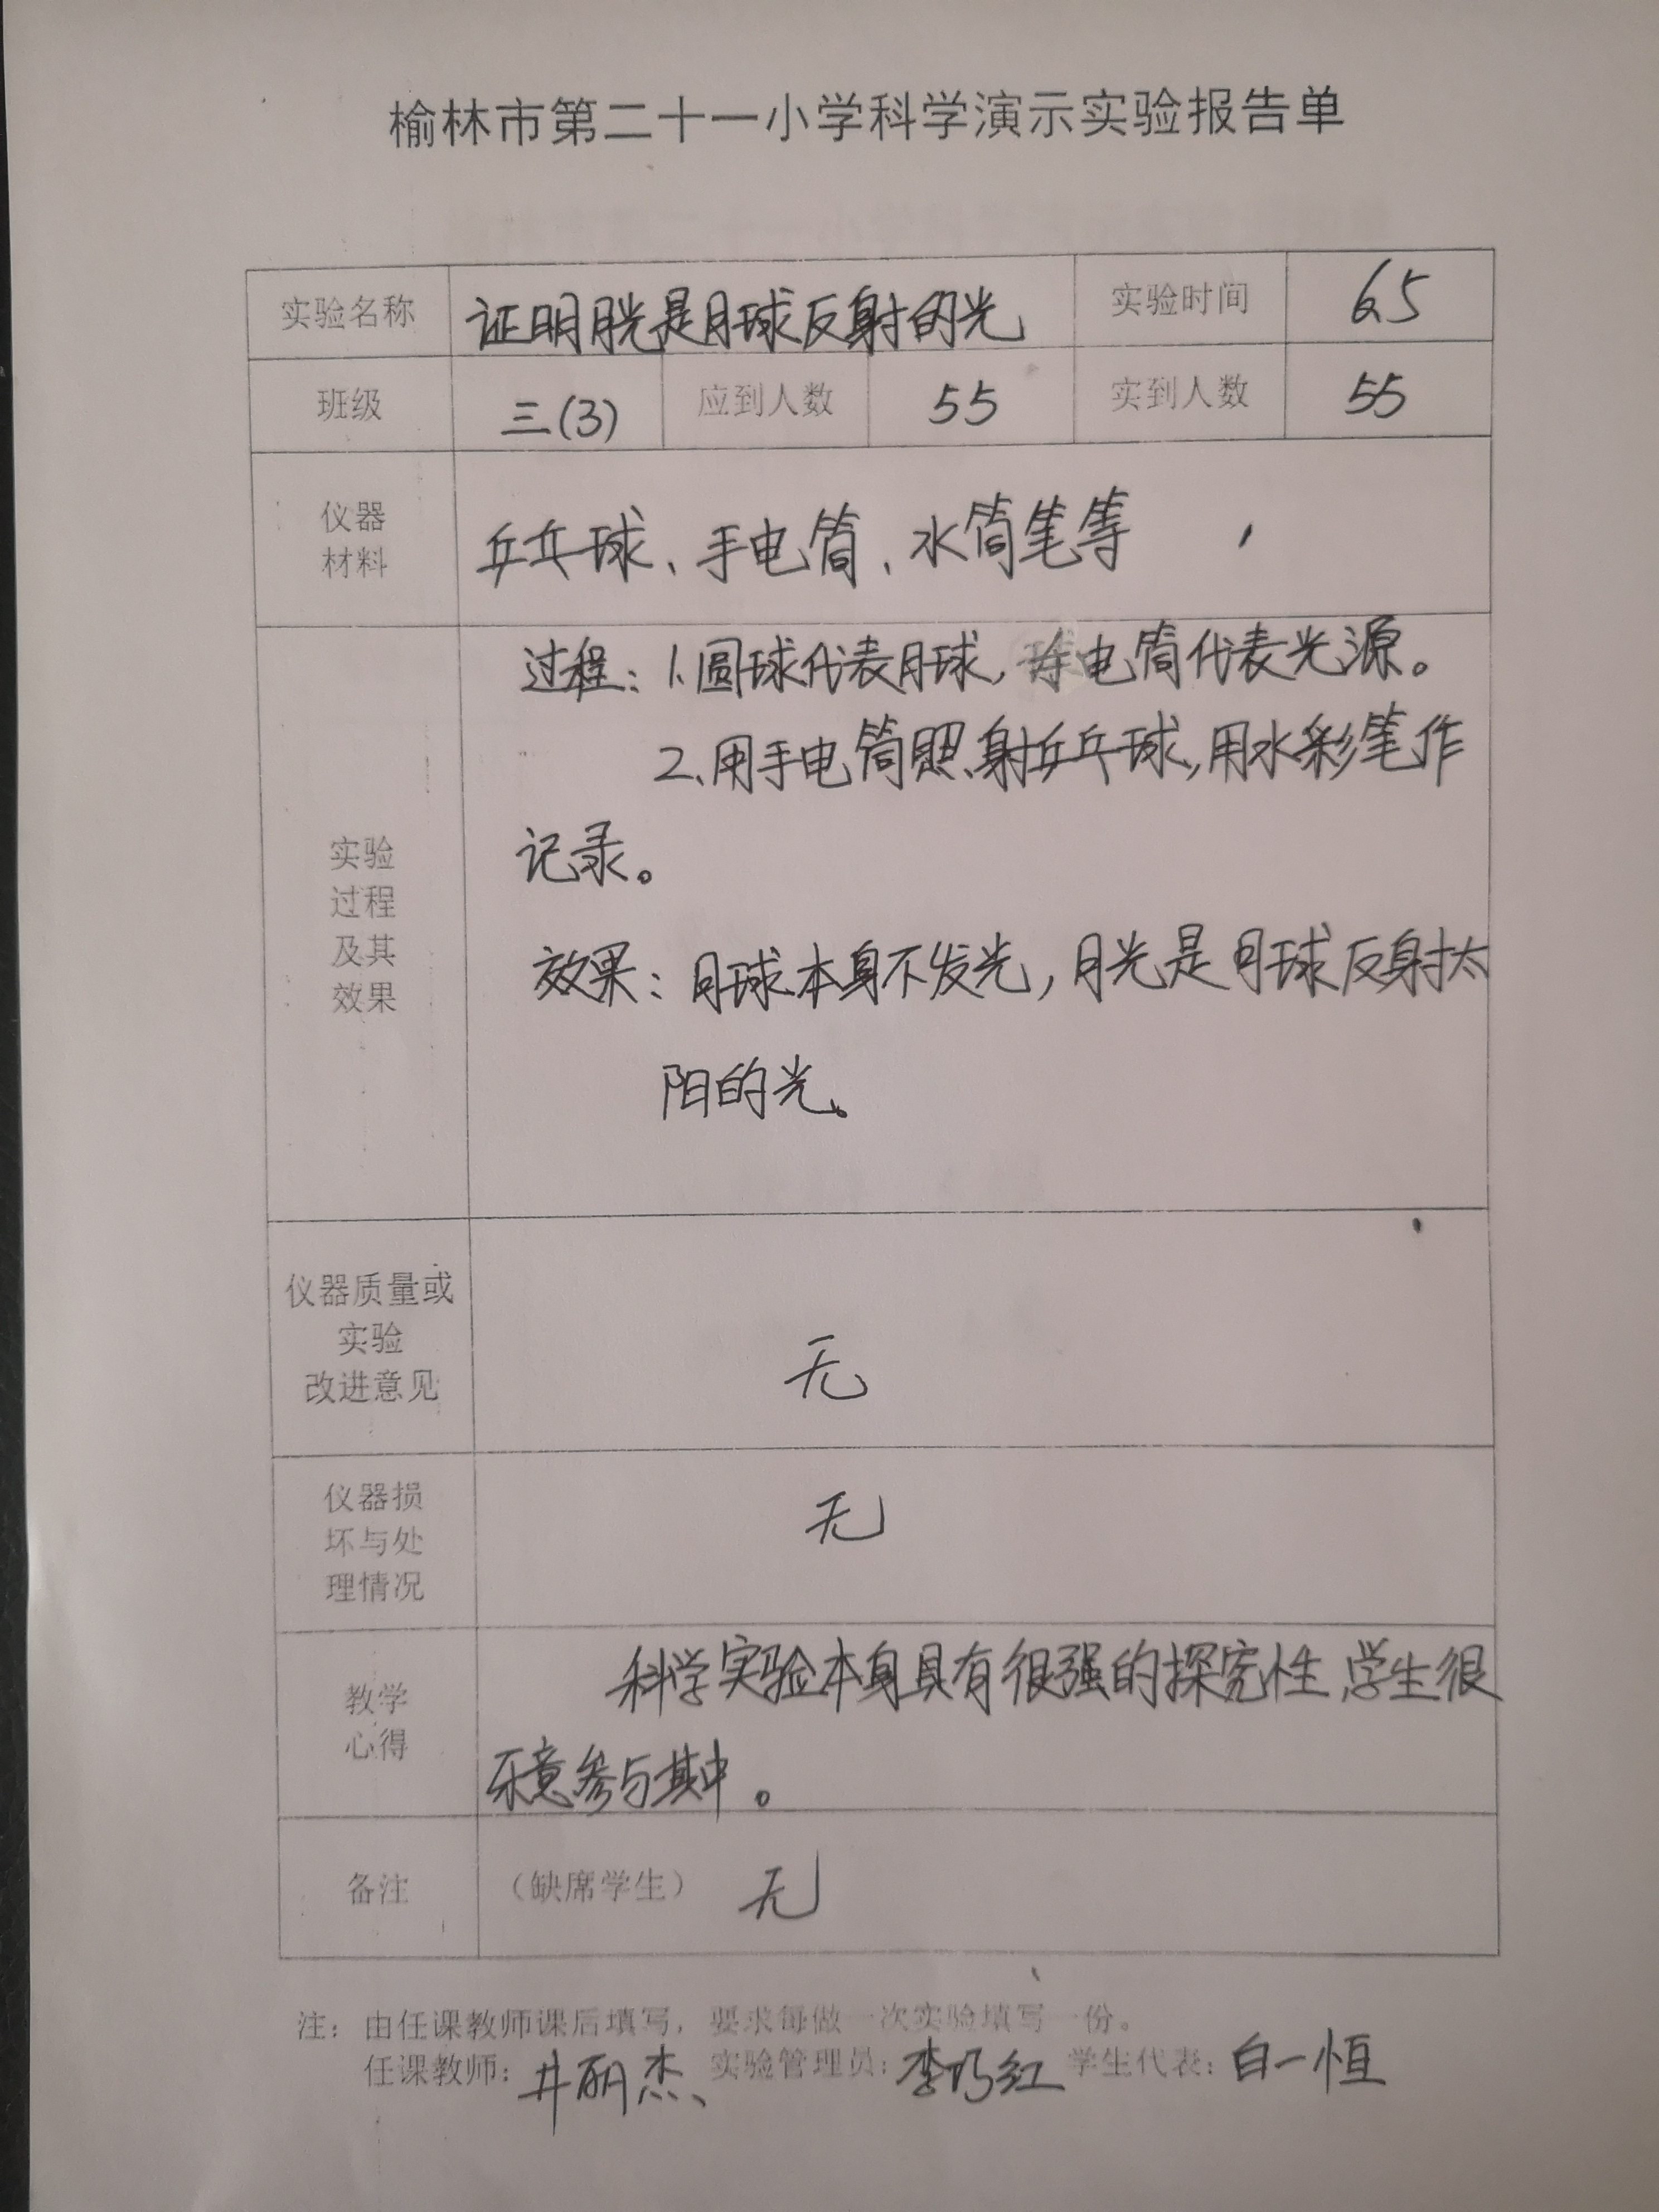 榆林市第二十一小学科学演示实验报告单
实验名称 证明月光是月球反射的光 实验时间 6.5
班级 三(3) 应到人数 55 实到人数 55
仪器
材料
乒乓球、手电筒、水筒笔等
实验
过程
及其
效果
过程：1.圆球代表月球，手电筒代表光源。
2.用手电筒照射乒乓球，用水彩笔作
记录。
效果：月球本身不发光，月光是月球反射太
阳的光。
仪器质量或
实验
改进意见
无
仪器损
坏与处
理情况
无
教学
心得
科学实验本身具有很强的探究性，学生很
乐意参与其中。
备注 （缺席学生） 无
注：由任课教师课后填写，要求每做一次实验填写一份。
任课教师：井丽杰 实验管理员：李巧红 学生代表：白一恒